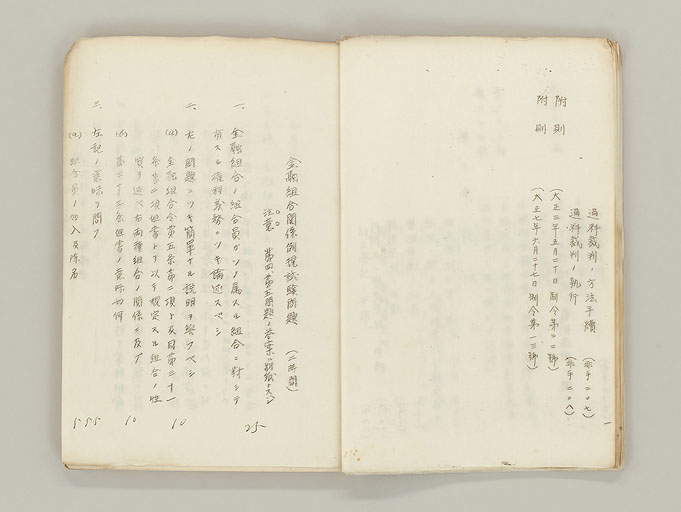 過料裁判ノ方法手續 (非手二〇七)
過料裁判ノ執行 (非手二〇八)
附則 (大正三年五月二十日制令第二二號)
附則 (大正七年六月二十七日制令第一三號)
金融組合関係例規試験問題 (二時間)
注意 第四、第五問題ノ答案ハ別紙トスベシ
一、金融組合ノ組合員ガソノ属スル組合ニ対シテ
有スル権利義務ニツキ論述スベシ 25
二、左ノ問題ニツキ簡単ナル説明ヲ発フベシ
(a) 金融組合令第五条第二項及同第二十一
条第二項但書トヲ以テ規定スル組合ノ性
質ヲ述ベ右両種組合ノ関係ニ及ブ 10
(b) 第三十二条但書ノ意味如何 10
三、左記ノ意味ヲ問フ
(a) 組合員ノ加入及除名 5 5 5